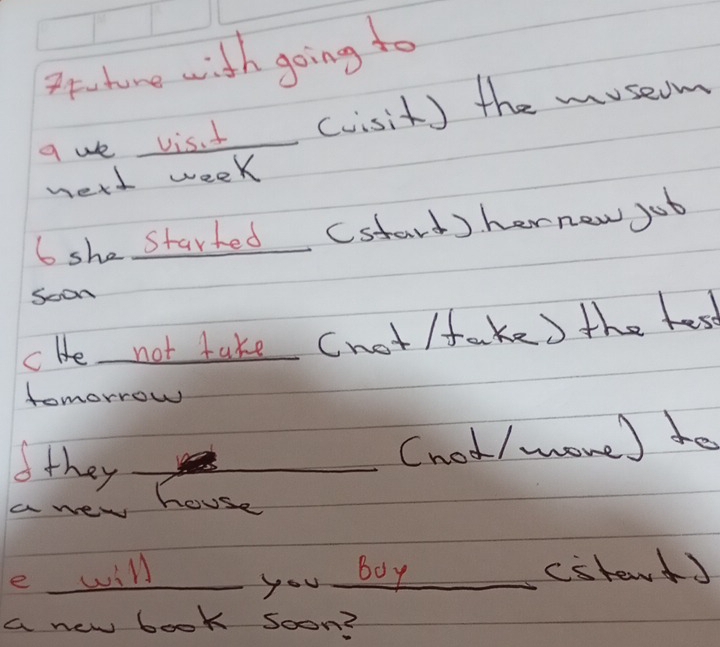 7 Future with going to
a we visit (visit) the museum
next week
b she started (start) her new job
soon
c He not take (not/take) the test
tomorrow
d they (not/move) to
a new house
e will you Buy (start)
a new book soon?